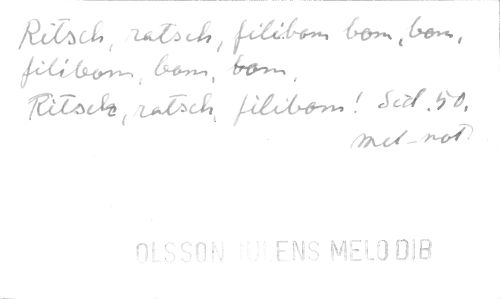 Ritsch, ratsch, filibom bom, bom,
filibom, bom, bom,
Ritsch, ratsch, filibom! Sid. 50.
mel-not.
OLSSON JULENS MELODIB